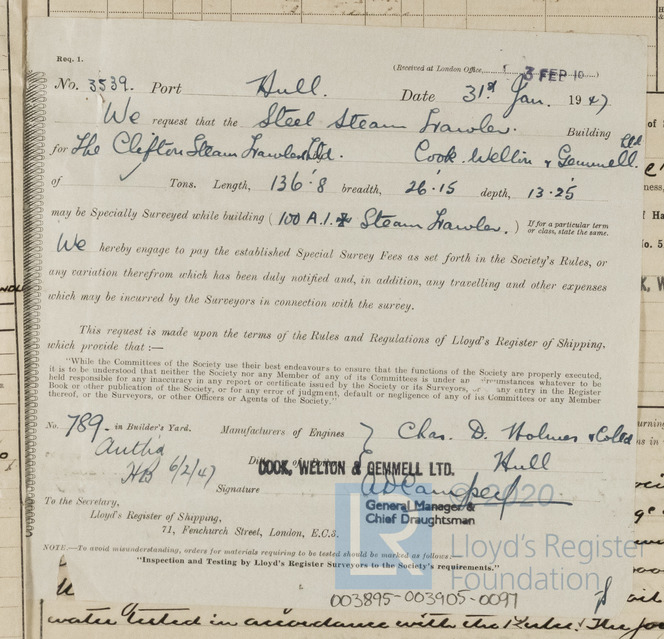 Req. 1.
(Received at London Office, 3 FEB 10)
No. 3539. Port Hull. Date 31st Jan. 1947
We request that the Steel Steam Trawler. Building
for The Clifton Steam Trawlers Ltd. Cook. Wellin & Gemmell. Ltd
of Tons. Length, 136'·8 breadth, 26·15 depth, 13·25
may be Specially Surveyed while building ( 100 A.1. Steam Trawler. ) If for a particular term
or class, state the same.
We hereby engage to pay the established Special Survey Fees as set forth in the Society's Rules, or
any variation therefrom which has been duly notified and, in addition, any travelling and other expenses
which may be incurred by the Surveyors in connection with the survey.
This request is made upon the terms of the Rules and Regulations of Lloyd's Register of Shipping,
which provide that :—
"While the Committees of the Society use their best endeavours to ensure that the functions of the Society are properly executed,
it is to be understood that neither the Society nor any Member of any of its Committees is under an circumstances whatever to be
held responsible for any inaccuracy in any report or certificate issued by the Society or its Surveyors, any entry in the Register
Book or other publication of the Society, or for any error of judgment, default or negligence of any of its Committees or any Member
thereof, or the Surveyors, or other Officers or Agents of the Society."
No. 789. in Builder's Yard. Manufacturers of Engines Chas. D. Holmes & Co Ltd
HB 6/2/47 Hull
COOK, WELTON & GEMMELL LTD.
Signature
General Manager &
Chief Draughtsman
To the Secretary,
Lloyd's Register of Shipping,
71, Fenchurch Street, London, E.C.3.
NOTE.—To avoid misunderstanding, orders for materials requiring to be tested should be marked as follows:
"Inspection and Testing by Lloyd's Register Surveyors to the Society's requirements."
© 2020
LR
Lloyd's Register
Foundation
003895-003905-0097
water tested in accordance with the Rules. The